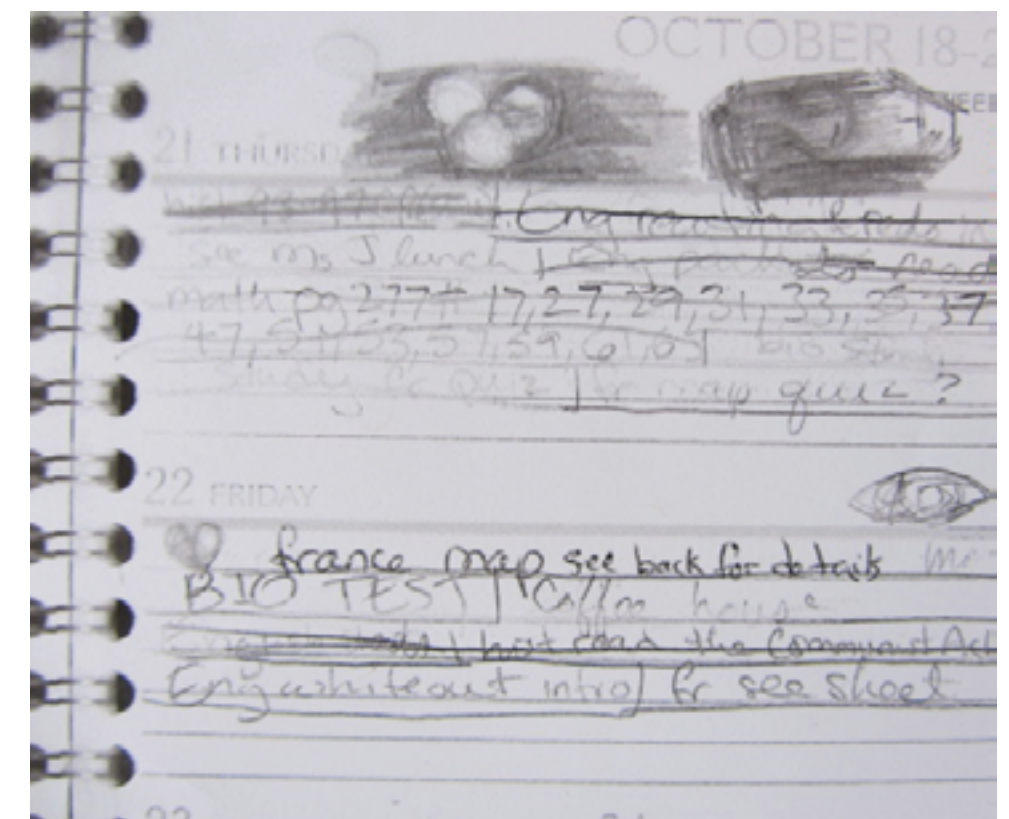 OCTOBER 18-2
WEE
21 THURSDA
Eng read
see ms J lunch | Eng read
math pg 277# 17, 27, 29, 31, 33, 35, 37
47, 51, 53, 57, 59, 61, 63 | bio
Study fr quiz | fr map quiz ?
22 FRIDAY
france map see back for details
BIO TEST | Coffee house
| hist read the Communist
Eng whiteout intro | fr see sheet
23